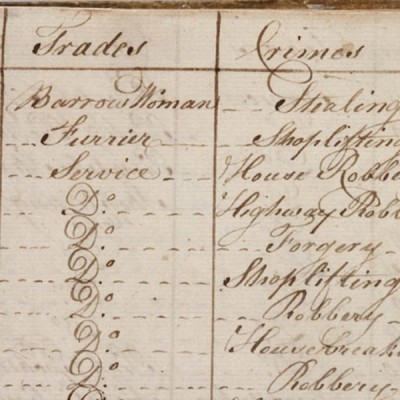 Trades Crimes
Barrow Woman Stealing
Furrier Shoplifting
Service House Robbe
Do Highway Robb
Do Forgery
Do Shoplifting
Do Robbery
Do Housebreak
Do Robbery